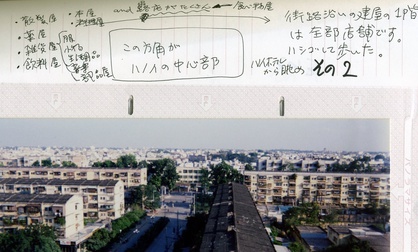 ・散髪屋
・薬屋
・雑貨屋
・飲料屋
・本屋
・料理屋
服
小物
and 露店がたくさん
食べ物屋
この方角が
ハノイの中心部
街路沿いの建屋の1階
は全部店舗です。
ハシゴして歩いた。
ハノイホテル
から眺め
その2